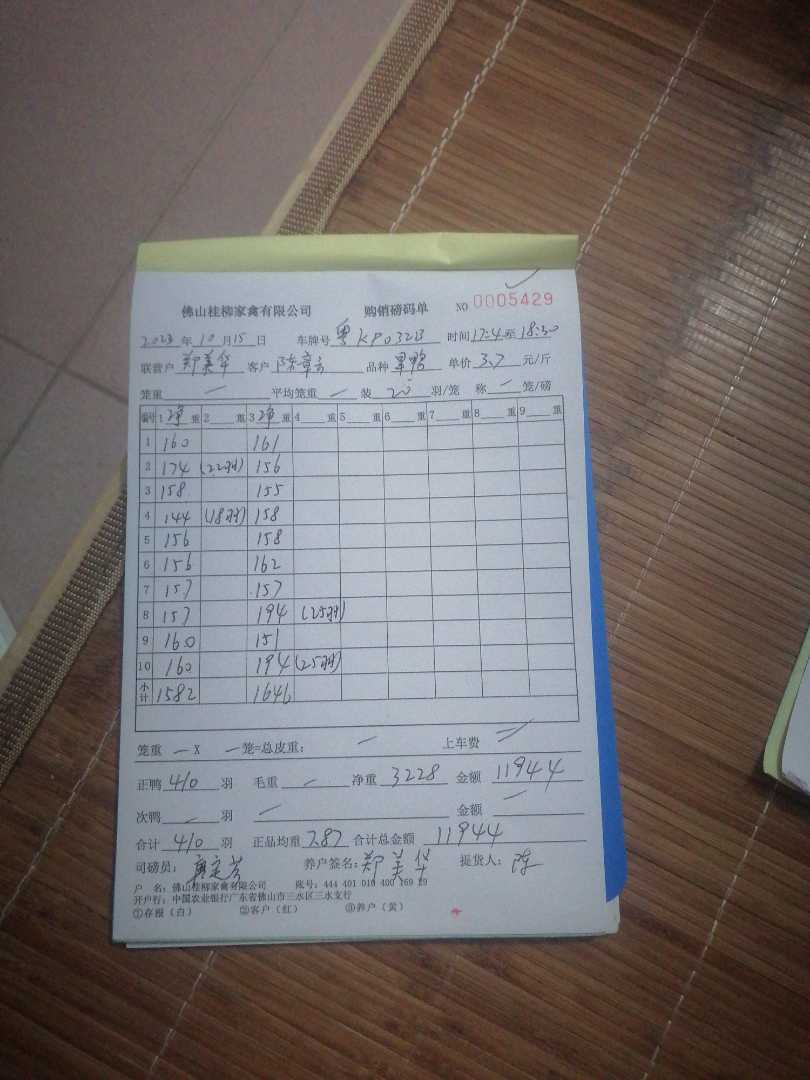 佛山桂柳家禽有限公司 购销磅码单 NO 0005429
2023年10月15日 车牌号 粤KP0323 时间17:4至18:30
联营户 郑美华 客户 陈章 品种 旱鸭 单价 3.7 元/斤
笼重 — 平均笼重 — 装 20 羽/笼 称 — 笼/磅
编号 1 净 重 2 重 3 净 重 4 重 5 重 6 重 7 重 8 重 9 重
1 160 161
2 174 (22羽) 156
3 158 155
4 144 (18羽) 158
5 156 158
6 156 162
7 157 157
8 157 194 (25羽)
9 160 151
10 160 194 (25羽)
小计 1582 1646
笼重 — X — 笼=总皮重: — 上车费 —
正鸭 410 羽 毛重 — 净重 3228 金额 11944
次鸭 — 羽 — 金额 —
合计 410 羽 正品均重 7.87 合计总金额 11944
司磅员: 养户签名: 郑美华 提货人: 陈
户 名: 佛山桂柳家禽有限公司 账号: 444 401 010 400 169 29
开户行: 中国农业银行广东省佛山市三水区三水支行
①存根(白) ②客户(红) ③养户(黄)